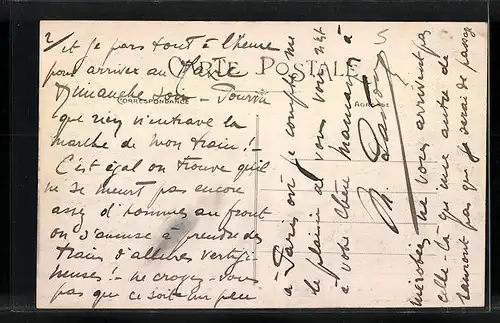 2/
et je pars tout à l'heure
pour arriver au Havre
CARTE POSTALE
Dimanche soir - Pourvu
CORRESPONDANCE
ADRESSE
que rien n'entrave la
marche de mon train! -
C'est égal on trouve qu'il
ne se meurt pas encore
assez d'hommes au front
on s'amuse à prendre des
trains d'allures vertigi-
neuses! - ne croyez-vous
pas que ce soit un peu
à Paris où je compte me
le plaisir de vous
à votre chère Maman à
M.
ne vous arrivent pas
celle-là qu'une autre de
sauront pas que je serai de passage